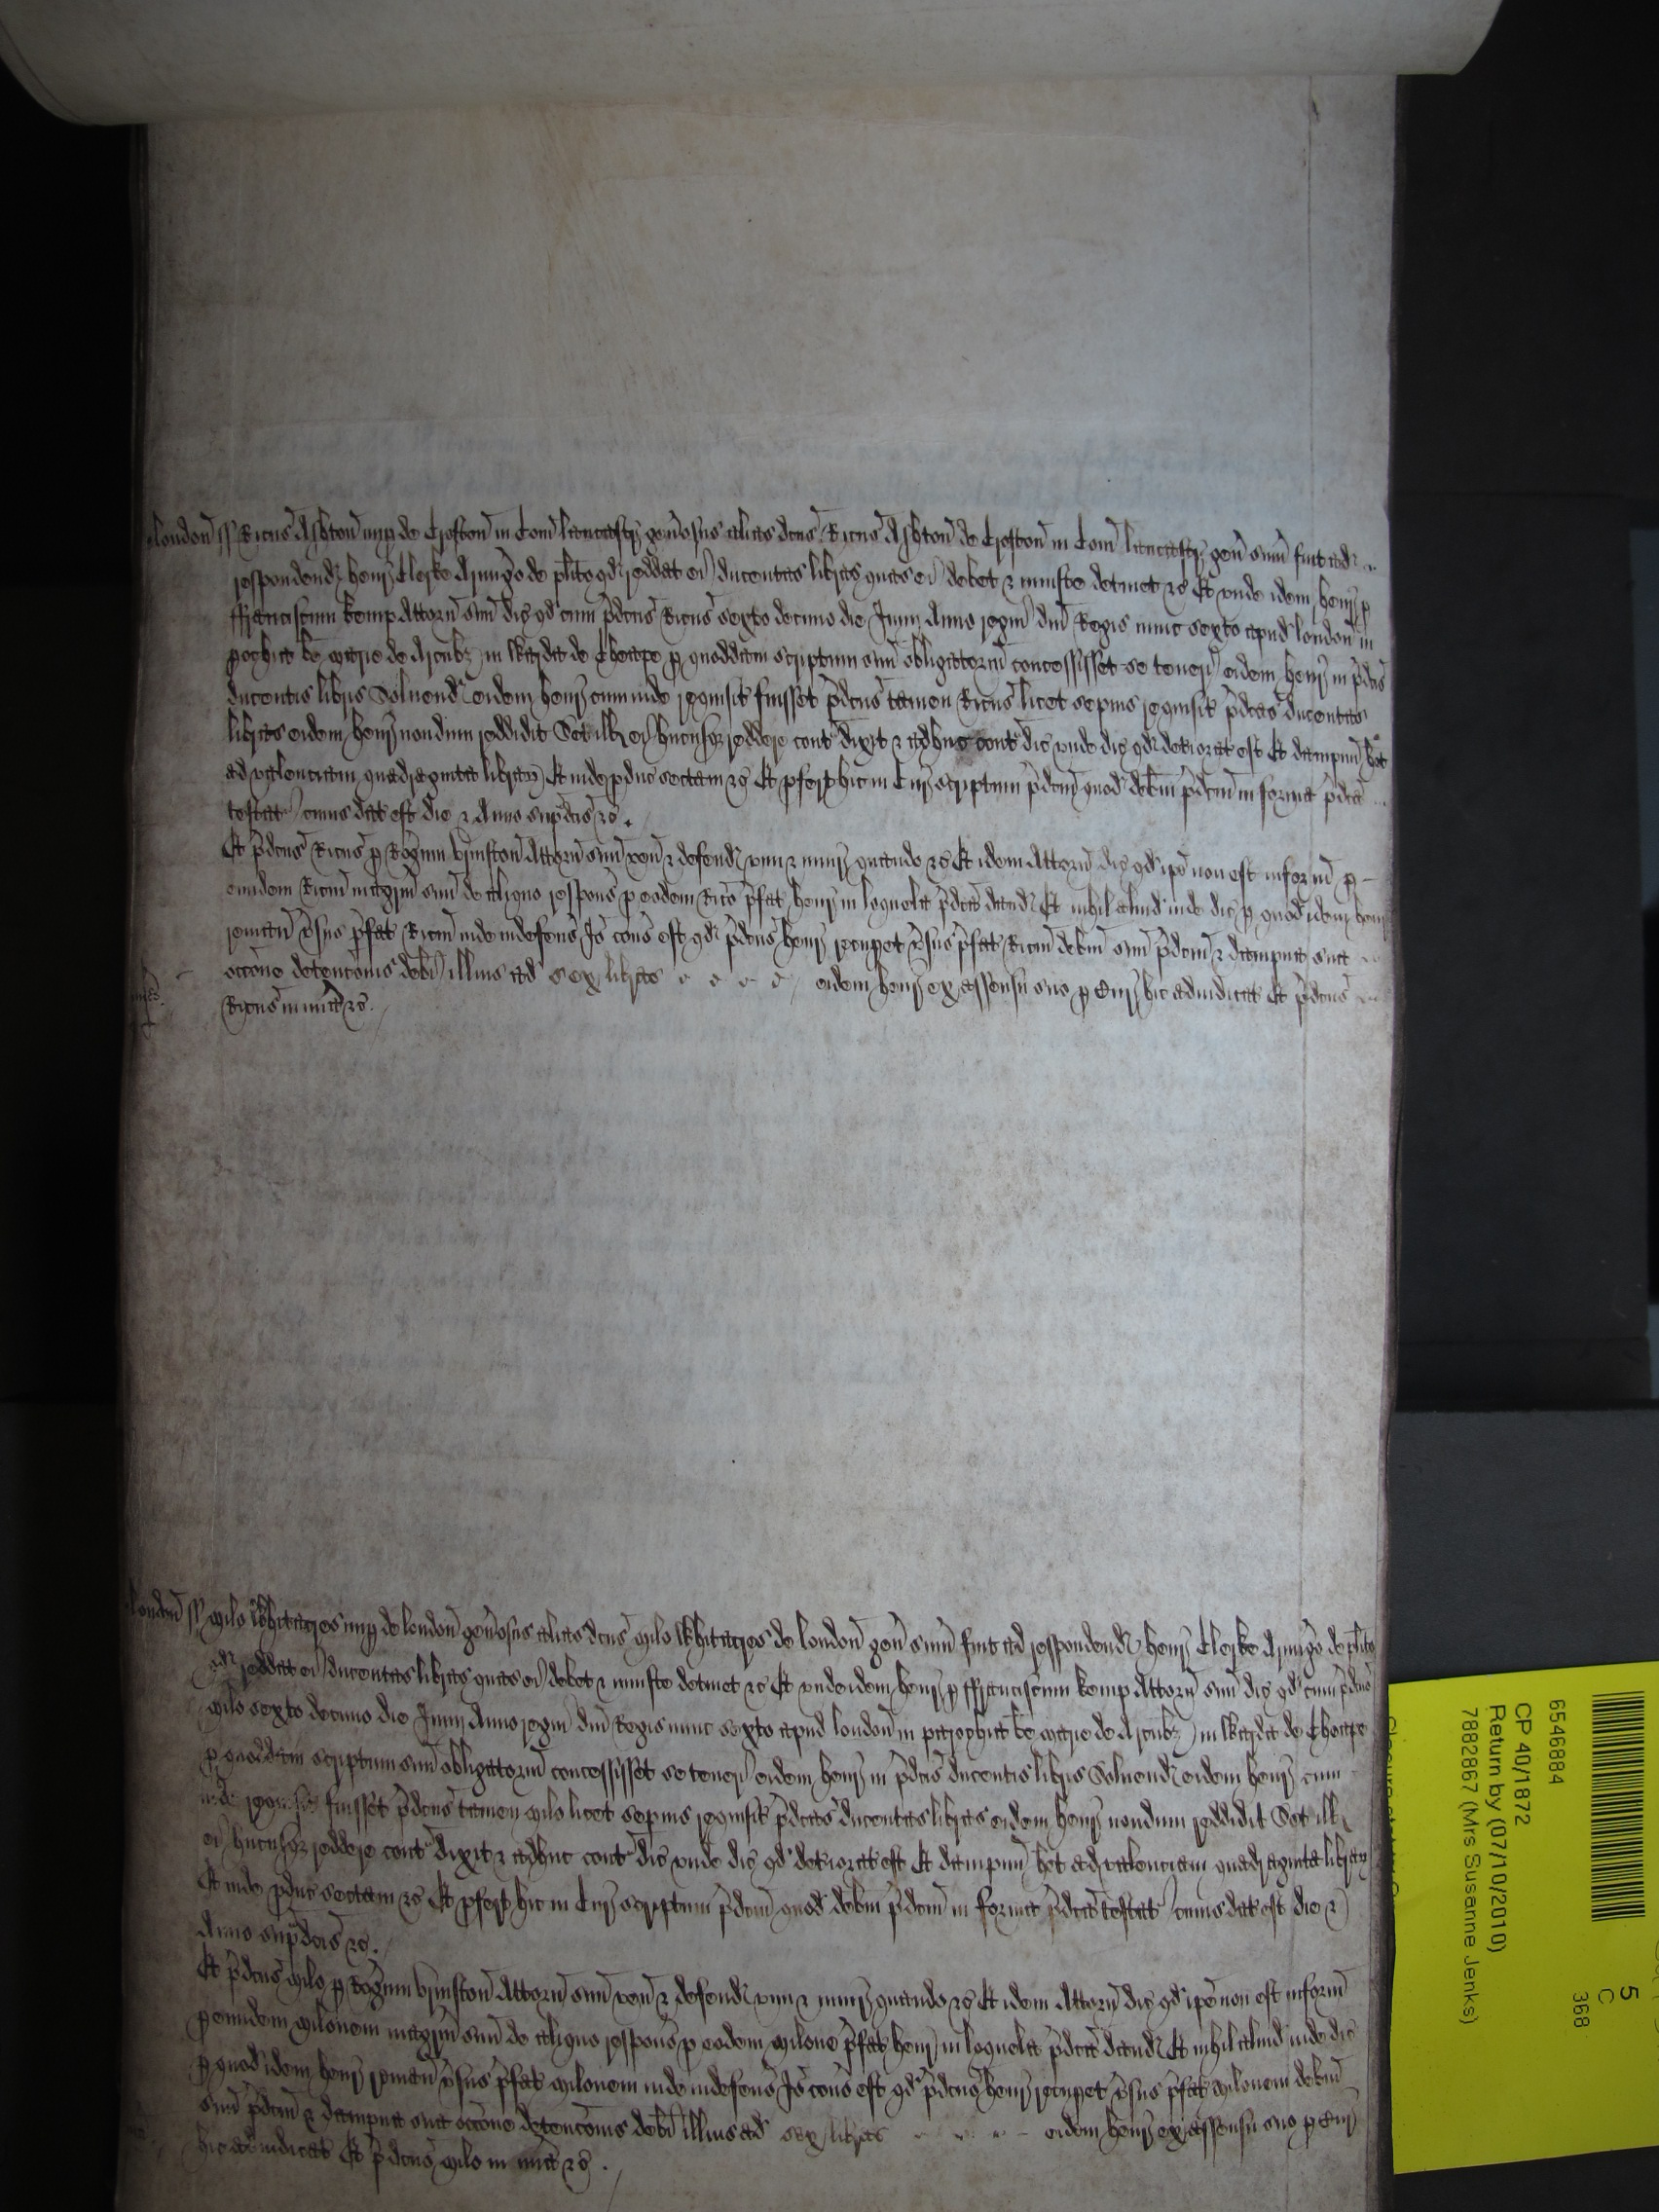 London̄ ss Ricūs Assheton̄ nup de Crofton̄ in Com̄ Lancastr̄ gen̄osus alias dc̄us Ricūs Assheton̄ de Crofton̄ in Com̄ Lancastr̄ gen̄ sum̄ fuit ad
respondend Henr̄ Clerke Armiḡo de pl̄ito qd reddat ei ducentas libras quas ei debet & iniuste detinet &c Et unde idem Henr̄ p
ffranciscum Kemp Attorn̄ suū dic̄ qd cum p̄dc̄us Ricūs sexto decimo die Junij Anno regni dn̄i Regis nunc sexto apud London̄ in
pochia bē Marie de Arcubȝ in Warda de Cheape p quoddam scriptum suū obligatoriū concessisset se teneri eidem Henr̄ in p̄dc̄is
ducentis libris Soluend eidem Henr̄ cum inde requisit fuisset p̄dc̄us tamen Ricūs licet sepius requisit p̄dc̄as ducentas
libras eidem Henr̄ nondum reddidit Set ill ei hucusqȝ reddere cont dixit & adhuc cont dic̄ unde dic̄ qd deteriorat est Et dampnū het
ad valenciam quadraginta librar̄ Et inde pduc̄ sectam &c Et pfert hic in Cur̄ scriptum p̄dc̄m quod debm̄ p̄dc̄m in forma p̄dc̄a
testat cuius dat est die & Anno sup̄dc̄is &c
Et p̄dc̄us Ricūs p Rog̅um Attorn̄ suū ven̄ & defend vim & iniur̄ quando &c Et idem Attorn̄ dic̄ qd ip̄e non est informat p
eundem Ricm̄ magr̄m suū de aliquo respons̄ p eodem Rico p̄fat Henr̄ in loquela p̄dc̄a dand Et nihil aliud inde dic̄ p quod idem Henr̄
reman̄ v̄sus p̄fat Ricm̄ inde indefens̄ Iō cons̄ est qd p̄dc̄us Henr̄ recupet v̄sus p̄fat Ricm̄ debm̄ suū p̄dc̄m & dampna sua
occōne detencōnis debi illius ad sex libras eidem Henr̄ ex assensu suo p Cur̄ hic adiudicat Et p̄dc̄us
Ricūs in mīa &c
London̄ ss Milo Whitacres nup de London̄ gen̄osus alias dc̄us Milo Whitacres de London̄ gen̄ sum̄ fuit ad respondend Henr̄ Clerke Armiḡo de pl̄ito
qd reddat ei ducentas libras quas ei debet & iniuste detinet &c Et unde idem Henr̄ p ffranciscum Kemp Attorn̄ suū dic̄ qd cum p̄dc̄us
Milo sexto decimo die Junij Anno regni dn̄i Regis nunc sexto apud London̄ in parochia bē Marie de Arcubȝ in Warda de Cheape
p quoddam scriptum suū obligatoriū concessisset se teneri eidem Henr̄ in p̄dc̄is ducentis libris Soluend eidem Henr̄ cum
inde requisit fuisset p̄dc̄us tamen Milo licet sepius requisit p̄dc̄as ducentas libras eidem Henr̄ nondum reddidit Set ill
ei hucusqȝ reddere cont dixit & adhuc cont dic̄ unde dic̄ qd deteriorat est Et dampnū het ad valenciam quadraginta librar̄
Et inde pduc̄ sectam &c Et pfert hic in Cur̄ scriptum p̄dc̄m quod debm̄ p̄dc̄m in forma p̄dc̄a testat cuius dat est die &
Anno sup̄dc̄is &c
Et p̄dc̄us Milo p Rog̅um Attorn̄ suū ven̄ & defend vim & iniur̄ quando &c Et idem Attorn̄ dic̄ qd ip̄e non est informat
p eundem Milonem magr̄m suū de aliquo respons̄ p eodem Milone p̄fat Henr̄ in loquela p̄dc̄a dand Et nihil aliud inde dic̄
p quod idem Henr̄ reman̄ v̄sus p̄fat Milonem inde indefens̄ Iō cons̄ est qd p̄dc̄us Henr̄ recupet v̄sus p̄fat Milonem debm̄
suū p̄dc̄m & dampna sua occōne detencōnis debi illius ad sex libras eidem Henr̄ ex assensu suo p Cur̄
hic adiudicat Et p̄dc̄us Milo in mīa &c
6546884
CP 40/1872
Return by (07/10/2010)
7882867 (Mrs Susanne Jenks)
5
C
368